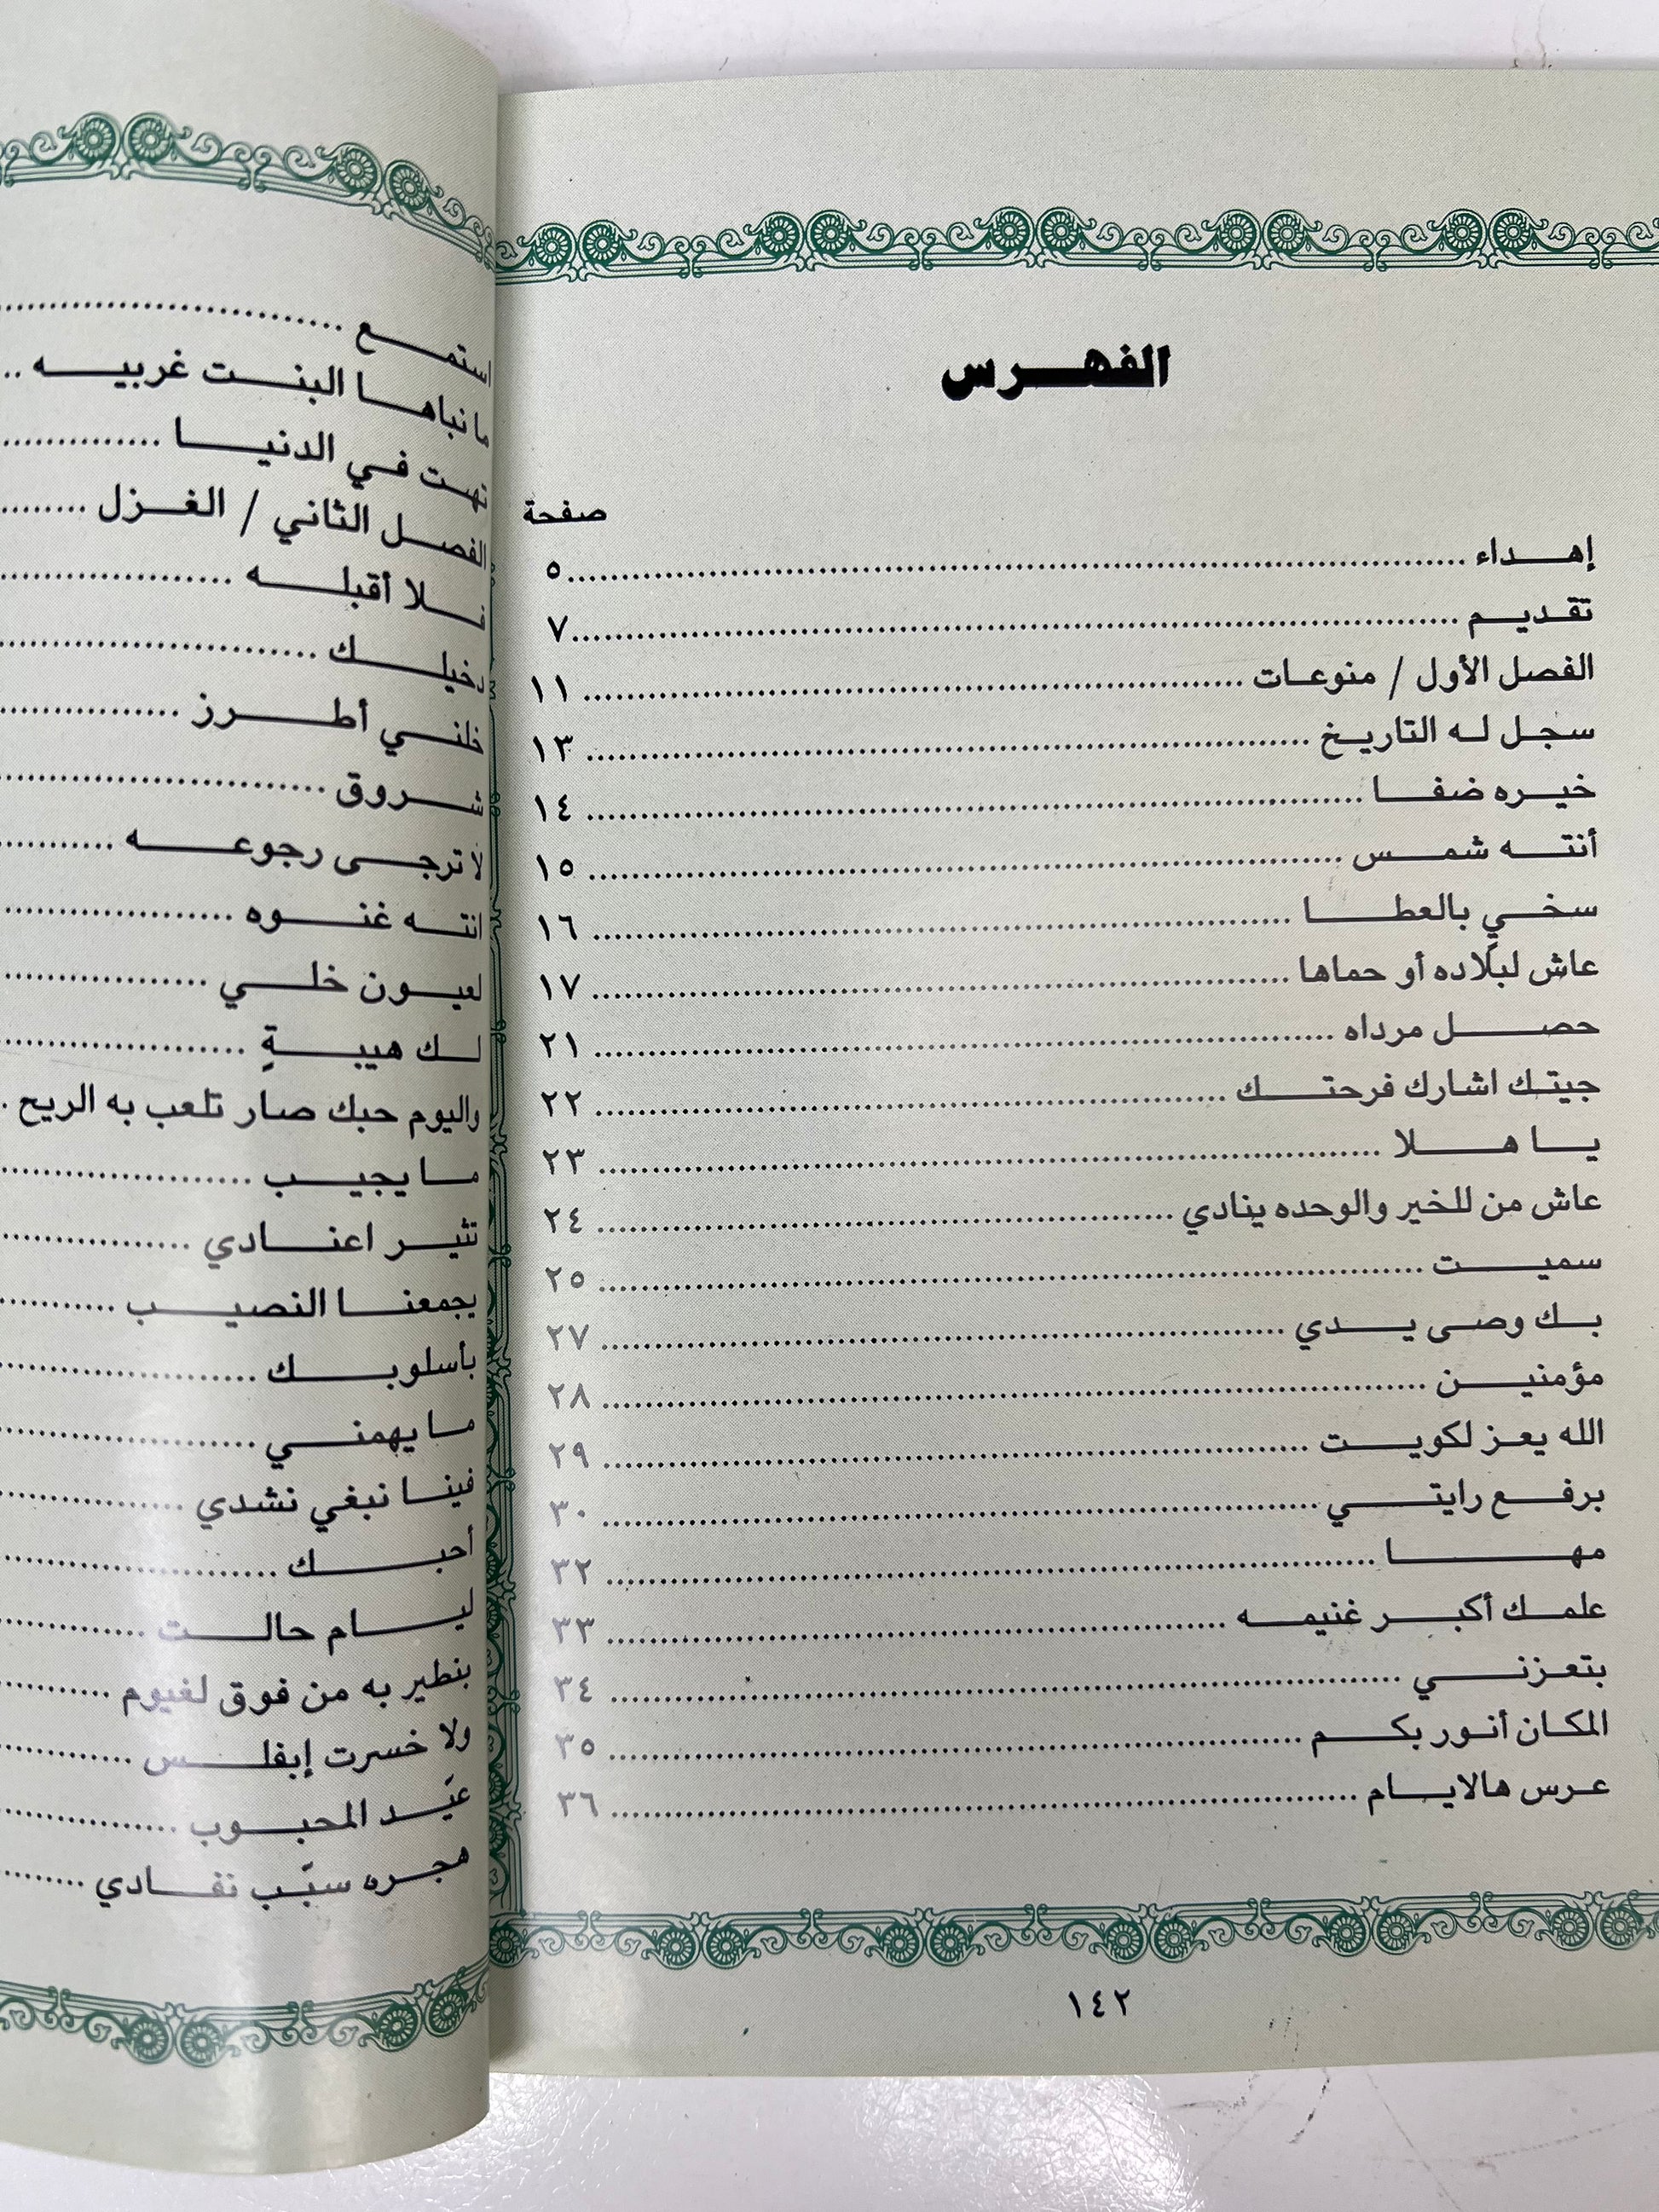 الفهرس
صفحة
إهداء ........ ٥
تقديم ........ ٧
الفصل الأول / منوعات ........ ١١
سجل له التاريخ ........ ١٣
خيره ضفا ........ ١٤
أنته شمس ........ ١٥
سخي بالعطا ........ ١٦
عاش لبلاده أو حماها ........ ١٧
حصل مرداه ........ ٢١
جيتك اشارك فرحتك ........ ٢٢
يا هلا ........ ٢٣
عاش من للخير والوحده ينادي ........ ٢٤
سميت ........ ٢٥
بك وصى يدي ........ ٢٧
مؤمنين ........ ٢٨
الله يعز لكويت ........ ٢٩
برفع رايتي ........ ٣٠
مها ........ ٣٢
علمك أكبر غنيمه ........ ٣٣
بتعزني ........ ٣٤
المكان أنور بكم ........ ٣٥
عرس هالايام ........ ٣٦
١٤٢
استمع ........
ما نباها البنت غربيه ..
تهت في الدنيا ........
الفصل الثاني / الغزل ........
فلا أقبله ........
دخيلك ........
خلني أطرز ........
شروق ........
لا ترجى رجوعه ........
انته غنوه ........
لعيون خلي ........
لك هيبةٍ ........
واليوم حبك صار تلعب به الريح .
ما يجيب ........
تثير اعنادي ........
يجمعنا النصيب ........
بأسلوبك ........
ما يهمني ........
فينا نبغي نشدي ........
أحبك ........
ليام حالت ........
بنطير به من فوق لغيوم ........
ولا خسرت إبفلس ........
عيّد المحبوب ........
هجره سبّب نفادي ........